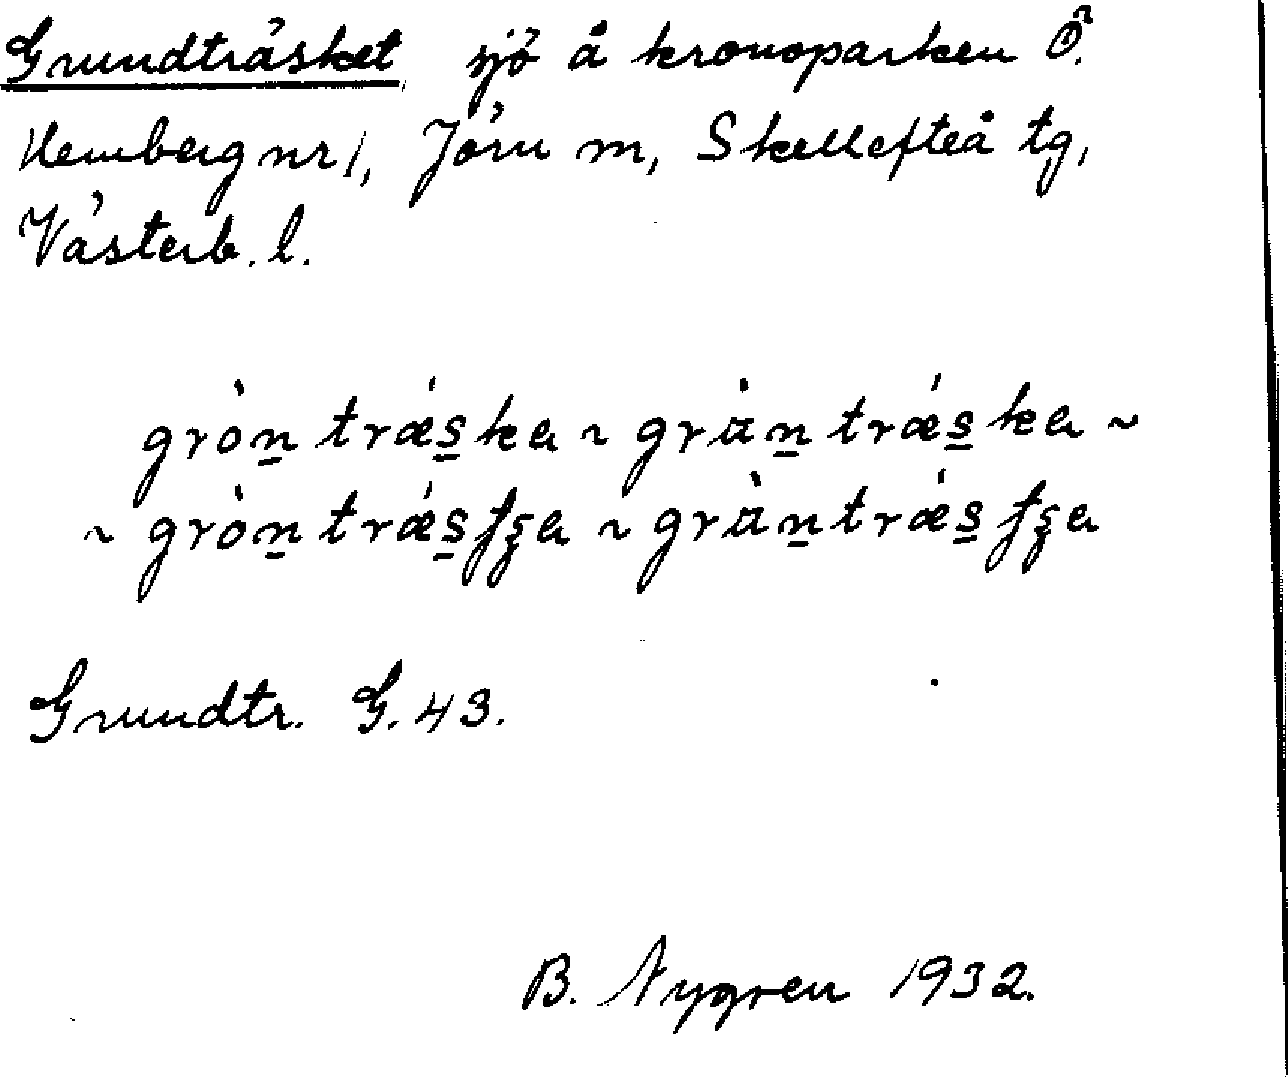 Grundträsket sjö å kronoparken Ö.
Hemberg nr 1, Jörn m, Skellefteå tg,
Västerb. l.
gròn̲ trǽs̲ka ~ grän̲ trǽs̲ka ~
~ gròn̲ trǽs̲ʃʂa ~ grä̀n̲ trǽs̲ʃʂa
Grundtr. G. 43.
B. Nygren 1932.